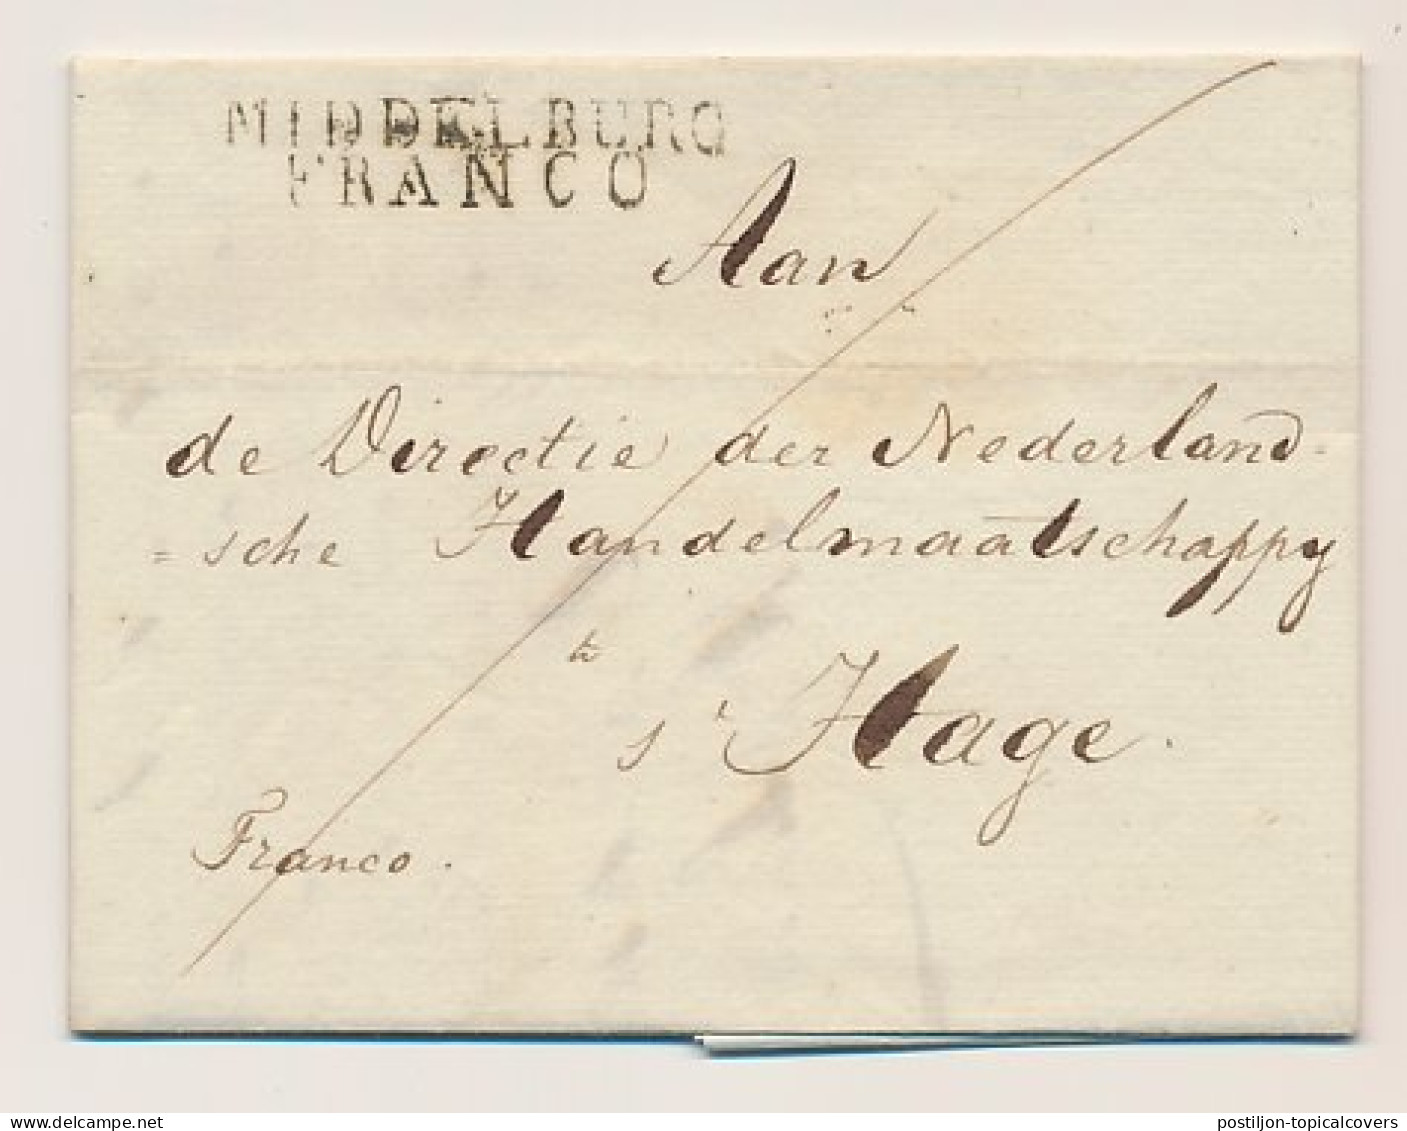 MIDDELBURG
FRANCO
Aan
de Directie der Nederland-
=sche Handelmaatschappy
te
s'Hage.
Franco.
delcampe.net
postiljon-topicalcovers